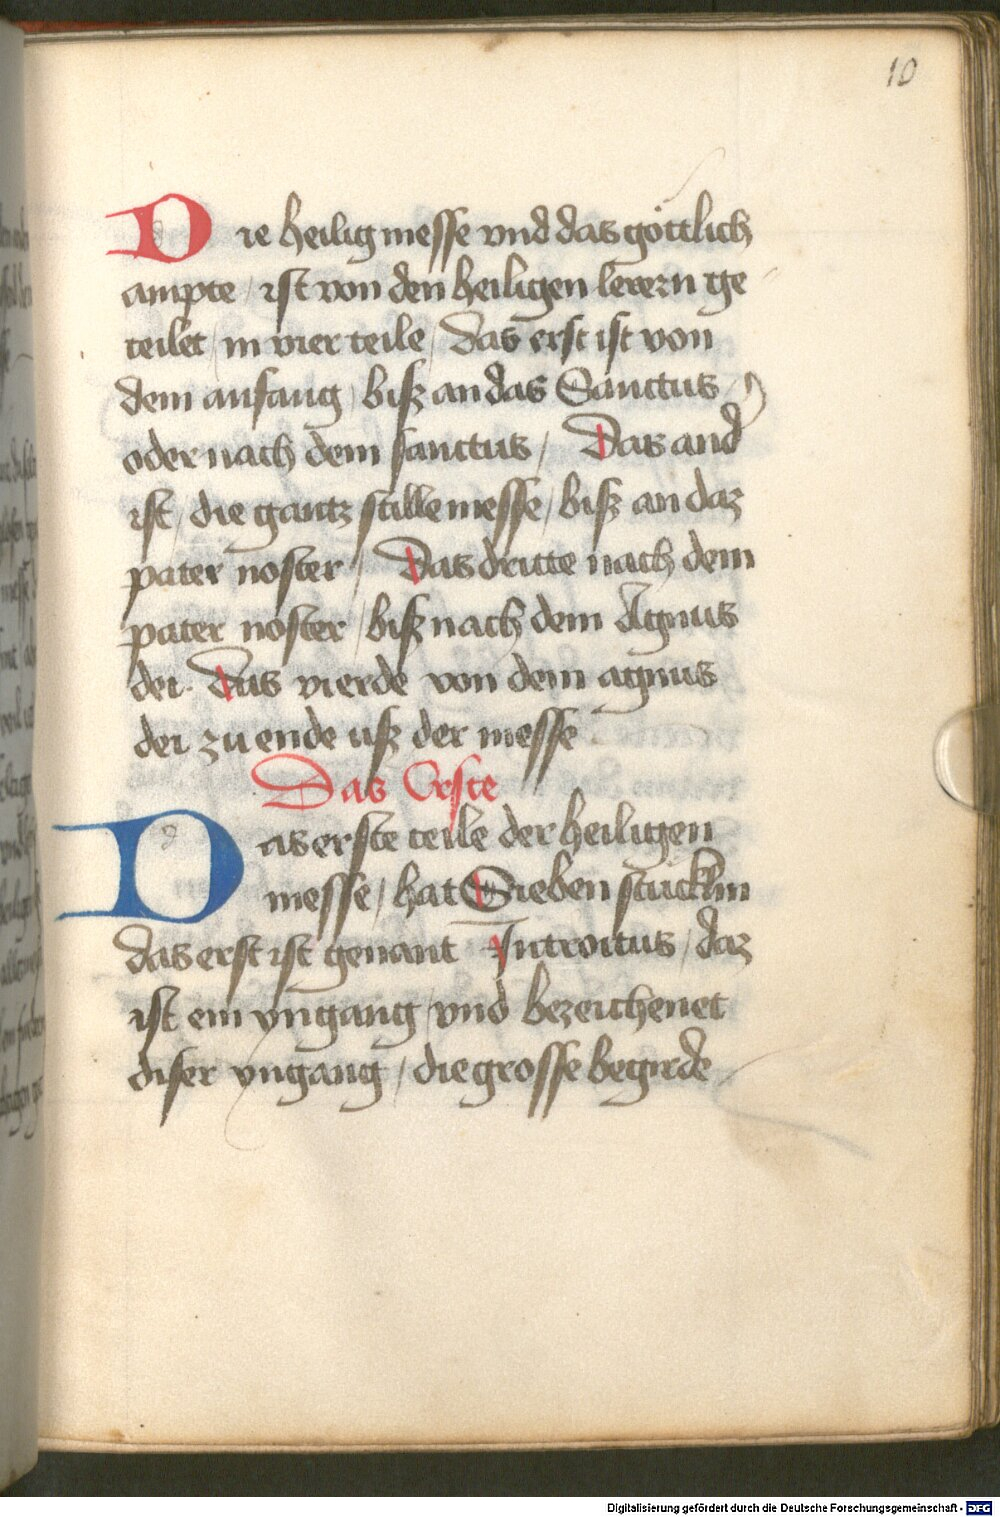 10
Die heilig messe vnd das göttlich
ampte / ist von den heiligen lerern ge
teilet / in vier teile / Das erst ist von
dem anfang / biß an das Sanctus /
oder nach dem sanctus / Das and
ist / die gantz stillemesse / biß an daz
pater noster / Das dritte nach dem
pater noster / biß nach dem Agnus
dei. Das vierde von dem agnus
dei zu ende uß der messe
Das Erste
Das erste teile der heiligen
messe / hat Sieben stücklin
das erst ist genant Introitus / daz
ist ein yngang / vnd bezeichenet
diser yngang / die grosse begirde
Digitalisierung gefördert durch die Deutsche Forschungsgemeinschaft - DFG